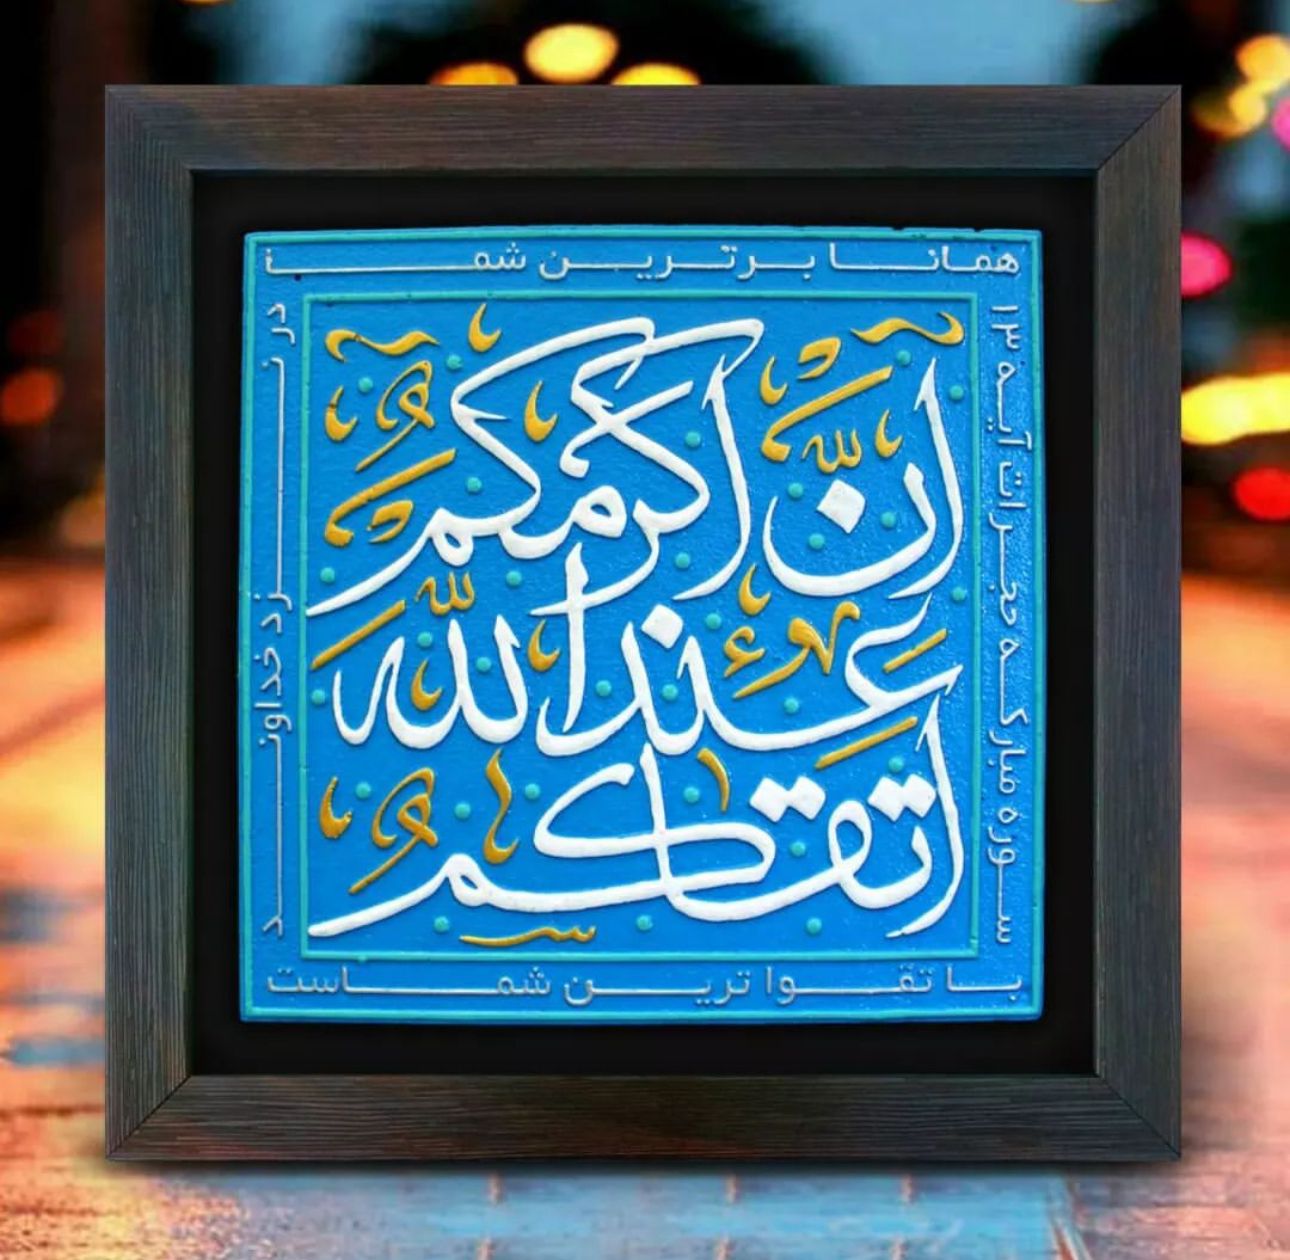 همانا برترین شما
در نزد خداوند
با تقوا ترین شماست
سوره مبارکه حجرات آیه ۱۳
انّ اکرمکم
عند الله
اتقاکم